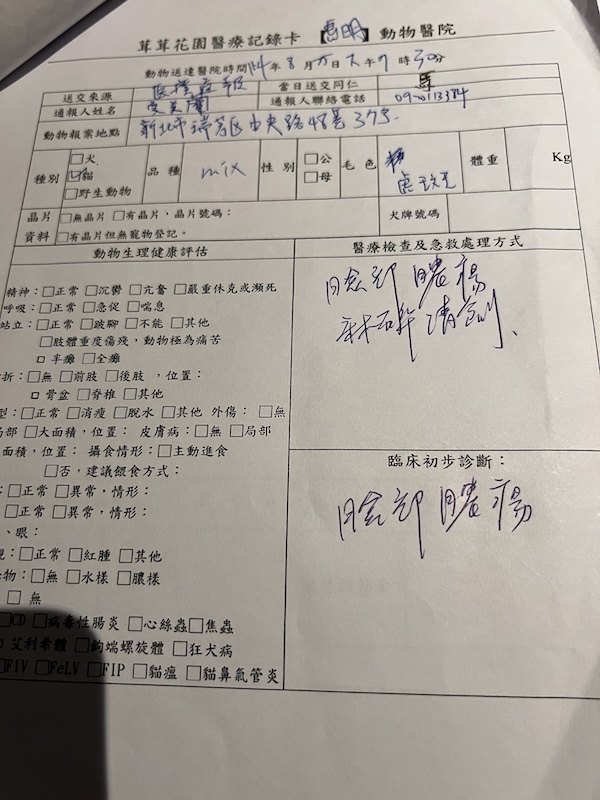 茸茸花園醫療記錄卡【惠明】動物醫院
動物送達醫院時間114年8月 日 午 時30分
送交來源 當日送交同仁
通報人姓名 通報人聯絡電話
動物報案地點 新北市瑞芳區中央路48號
種別 □犬 ☑貓 □野生動物 品種 mix 性別 □公 □母 毛色 體重 Kg
晶片資料 □無晶片 □有晶片,晶片號碼: 犬牌號碼
□有晶片但無寵物登記。
動物生理健康評估 醫療檢查及急救處理方式
精神:□正常 □沉鬱 □亢奮 □嚴重休克或瀕死
呼吸:□正常 □急促 □喘息
站立:□正常 □跛腳 □不能 □其他
□肢體重度傷殘,動物極為痛苦
□ 半癱 □全癱
折:□無 □前肢 □後肢 ,位置:
□ 骨盆 □脊椎 □其他
型:□正常 □消瘦 □脫水 □其他 外傷: □無
局部 □大面積,位置: 皮膚病:□無 □局部
面積,位置: 攝食情形:□主動進食
□否,建議餵食方式:
:□正常 □異常,情形:
□正常 □異常,情形:
、眼:
:□正常 □紅腫 □其他
物:□無 □水樣 □膿樣
□ 無
□CD □病毒性腸炎 □心絲蟲 □焦蟲
□ 艾利希體 □鉤端螺旋體 □狂犬病
□FIV □FeLV □FIP □貓瘟 □貓鼻氣管炎
臉部 膿瘍
麻醉清創、
臨床初步診斷:
臉部 膿瘍